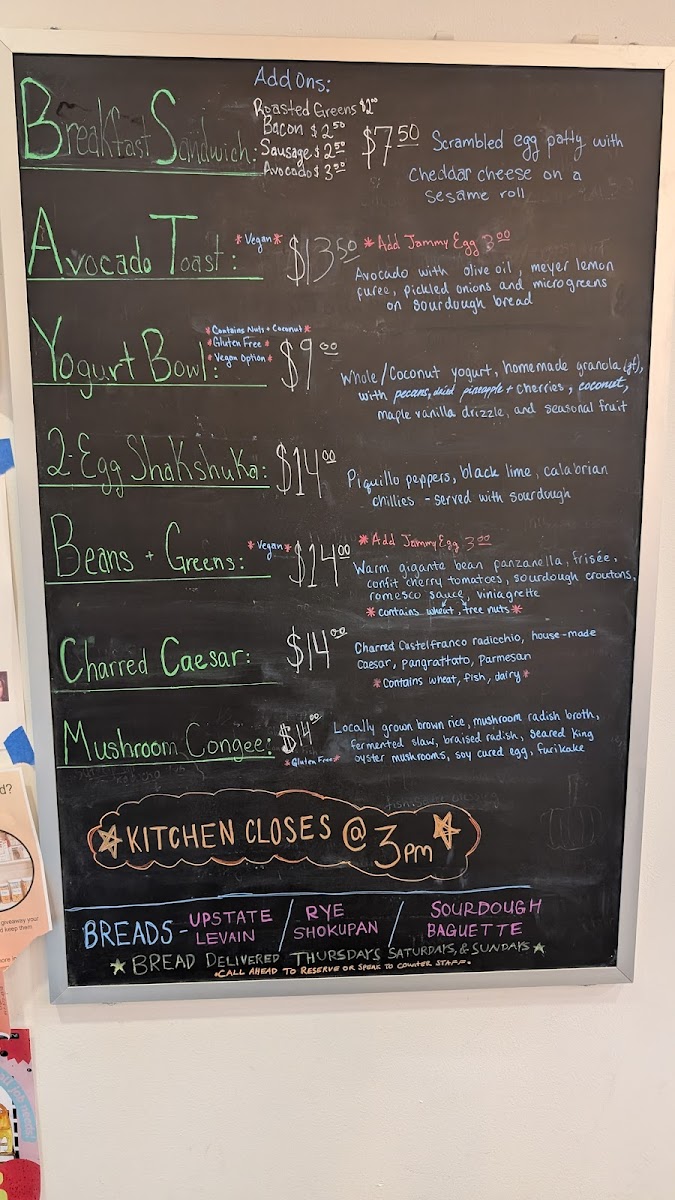 Add Ons:
Roasted Greens $2.00
Bacon $2.50
Sausage $2.50
Avocado $3.50
Breakfast Sandwich: $7.50 Scrambled egg patty with
cheddar cheese on a
sesame roll
Avocado Toast: *Vegan* $13.50 *Add Jammy Egg 3.00
Avocado with olive oil, meyer lemon
puree, pickled onions and microgreens
on sourdough bread
*Contains Nuts + Coconut*
*Gluten Free*
*Vegan Option*
Yogurt Bowl: $9.00
Whole/Coconut yogurt, homemade granola (gf),
with pecans, dried pineapple + cherries, coconut,
maple vanilla drizzle, and seasonal fruit
2-Egg Shakshuka: $14.00 Piquillo peppers, black lime, calabrian
chillies - served with sourdough
Beans + Greens: *Vegan* $14.00 *Add Jammy Egg 3.00
Warm gigante bean panzanella, frisée,
confit cherry tomatoes, sourdough croutons,
romesco sauce, viniagrette
*contains wheat, tree nuts*
Charred Caesar: $14.00 Charred Castelfranco radicchio, house-made
caesar, pangrattato, parmesan
*Contains wheat, fish, dairy*
Mushroom Congee: $14.00 *Gluten Free*
Locally grown brown rice, mushroom radish broth,
fermented slaw, braised radish, seared king
oyster mushrooms, soy cured egg, furikake
KITCHEN CLOSES @ 3pm
BREADS - UPSTATE LEVAIN / RYE SHOKUPAN / SOURDOUGH BAGUETTE
BREAD DELIVERED THURSDAYS SATURDAYS, & SUNDAYS
•CALL AHEAD TO RESERVE OR SPEAK TO COUNTER STAFF.•
d?
giveaway your
d keep them